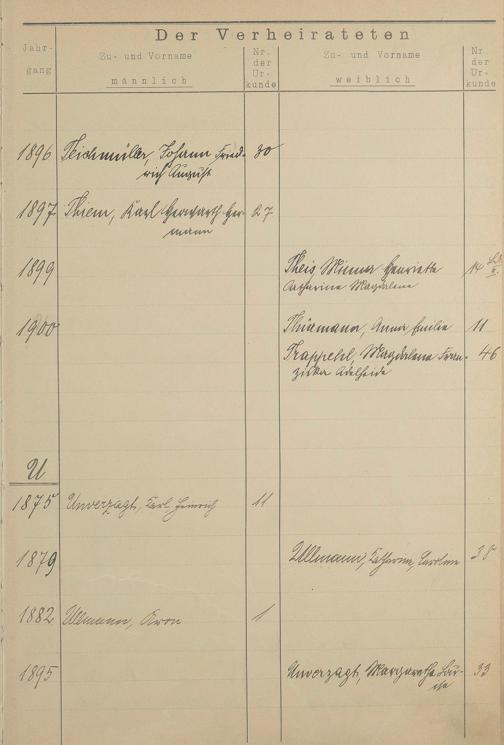 Der Verheirateten
Jahr-
gang
Zu- und Vorname
männlich
Nr.
der
Ur-
kunde
Zu- und Vorname
weiblich
Nr.
der
Ur-
kunde
1896 Teichmüller, Johann Fried- 30
rich August
1897 Thiem, Karl Herwarth Her- 27
mann
1899 Theis Minna Henriette 14
Catharina Magdalena
1900 Thümann, Anna Emilie 11
Trappehl, Magdalena Fran- 46
ziska Adelheide
U
1875 Unverzagt, Karl Heinrich 11
1879 Ullmann, Katharina, Caroline 38
1882 Ullmann, Aron 1
1895 Unverzagt, Margarethe 33